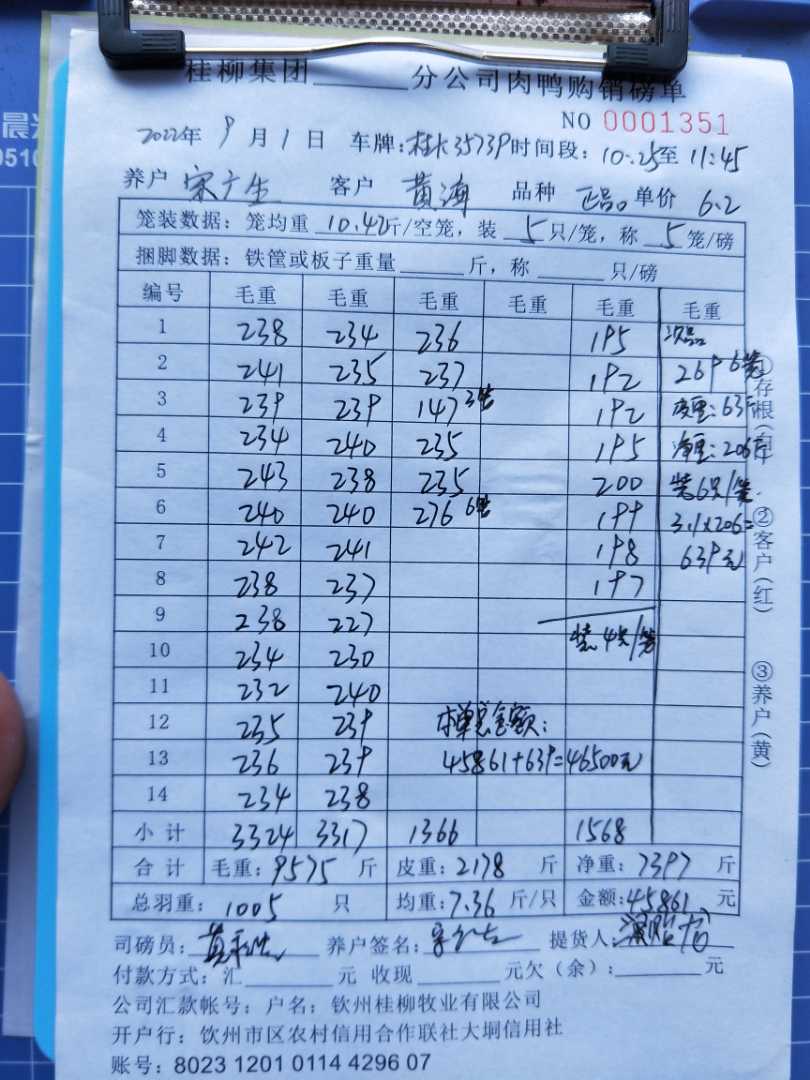 桂柳集团______分公司肉鸭购销磅单
NO 0001351
2022年 9月1日 车牌:桂K35739时间段:10:25至11:45
养户 宋广生 客户 黄海 品种 正品。单价 6.2
笼装数据:笼均重 10.42斤/空笼,装 5 只/笼,称 5 笼/磅
捆脚数据:铁筐或板子重量______斤,称______只/磅
编号 毛重 毛重 毛重 毛重 毛重 毛重
1 238 234 236 195 次品
2 241 235 237 192 269 6笼
3 239 239 147 3笼 192 皮重:63斤
4 234 240 235 195 净重:206斤
5 243 238 235 200 装6只/笼.
6 240 240 276 6笼 199 3.1×206=
7 242 241 198 639元
8 238 237 197
9 238 227
10 234 230 装4只/笼
11 232 240
12 235 239 本单总金额:
13 236 239 45861+639=46500元
14 234 238
小计 3324 3317 1366 1568
合计 毛重:9575 斤 皮重:2178 斤 净重:7397 斤
总羽重: 1005 只 均重:7.36 斤/只 金额:45861 元
司磅员: 养户签名: 提货人:
付款方式:汇______元 收现______元欠(余):______元
公司汇款帐号:户名:钦州桂柳牧业有限公司
开户行:钦州市区农村信用合作联社大垌信用社
账号:8023 1201 0114 4296 07
①存根(白)
②客户(红)
③养户(黄)
晨光
0510